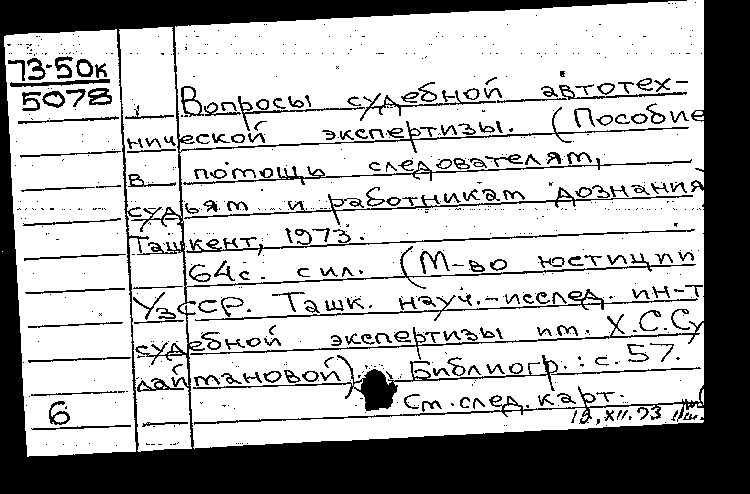 73-50к
5078
Вопросы судебной автотех-
нической экспертизы. (Пособие
в помощь следователям,
судьям и работникам дознания)
Ташкент, 1973.
64с. с ил. (М-во юстиции
УзССР. Ташк. науч.-исслед. ин-т
судебной экспертизы им. Х.С.Су
лаймановой). Библиогр.: с. 57.
См. след. карт.
6
12.XII.73